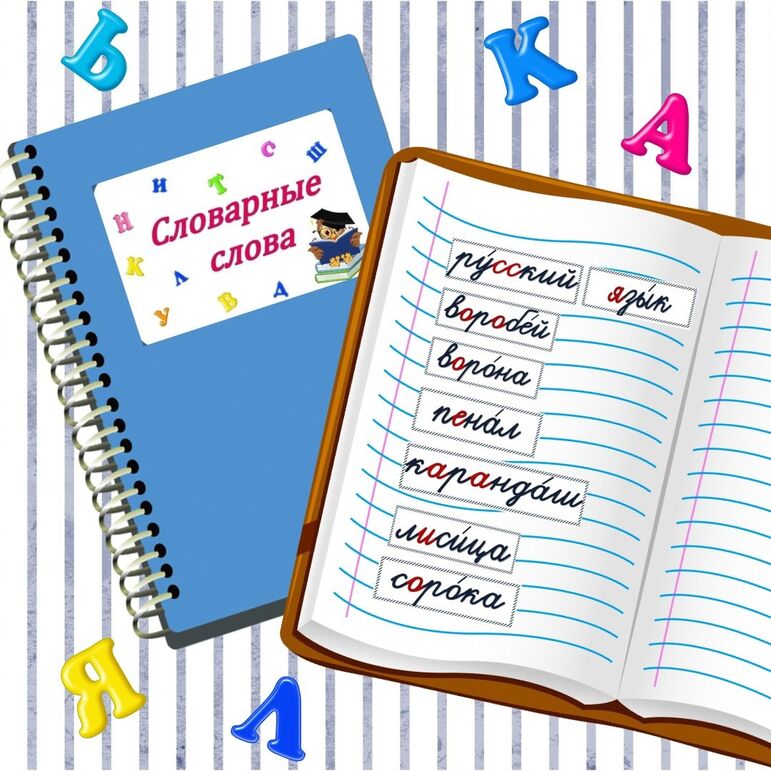 Ь
К
А
Н И Т С Ш
Словарные
слова
К Л
У В Д
ру́сский язы́к
воробе́й
воро́на
пена́л
каранда́ш
лиси́ца
соро́ка
Я
Л